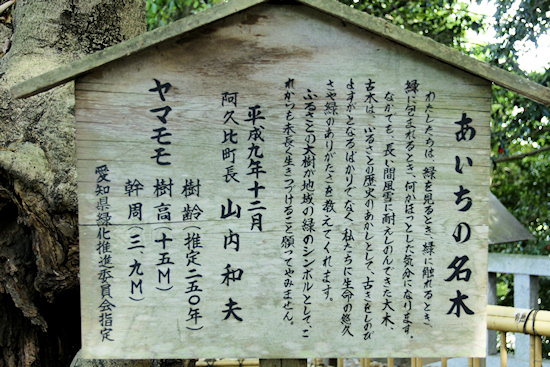 あいちの名木
わたしたちは、緑を見るとき、緑に触れるとき、
緑に包まれるとき、何かほっとした気分になります。
なかでも、長い間風雪に耐えしのんできた大木、
古木は、ふるさとの歴史のあかしとして、古きをしのび
よすがとなるばかりでなく、私たちに生命の悠久
さや緑のありがたさを教えてくれます。
ふるさとの大樹が地域の緑のシンボルとして、こ
れからも末長く生きつづけること願ってやみません。
平成九年十二月
阿久比町長 山内和夫
ヤマモモ
樹齢(推定二五〇年)
樹高(十五M)
幹周(三、九M)
愛知県緑化推進委員会指定